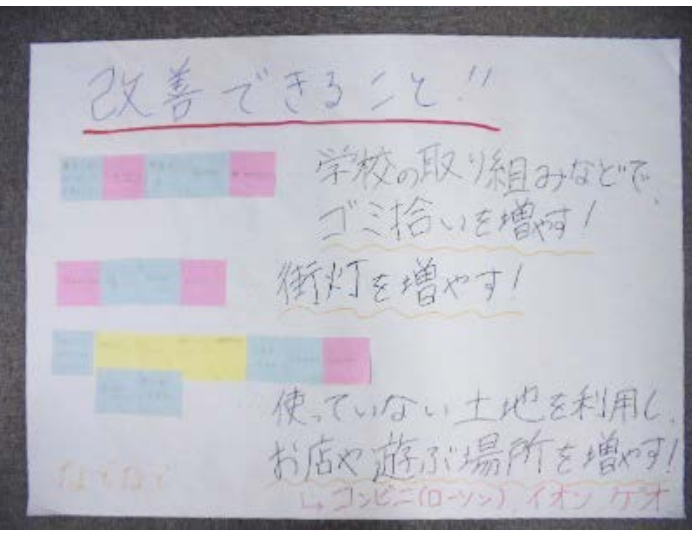 改善できること!!
学校の取り組みなどで、
ゴミ拾いを増やす!
街灯を増やす!
使っていない土地を利用し、
お店や遊ぶ場所を増やす!
↳コンビニ(ローソン) イオン ゲオ
などなど